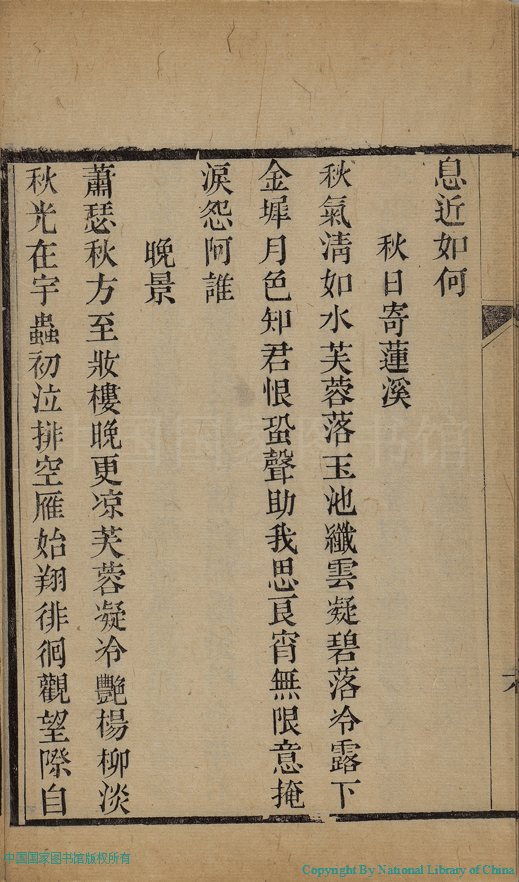 息近如何
秋日寄蓮溪
秋氣清如水芙蓉落玉池纖雲凝碧落冷露下
金墀月色知君恨蛩聲助我思良宵無限意掩
淚怨阿誰
晚景
蕭瑟秋方至妝樓晚更凉芙蓉凝冷艷楊柳淡
秋光在宇蟲初泣排空雁始翔徘徊觀望際自
中国国家图书馆
中国国家图书馆版权所有
Copyright By National Library of China